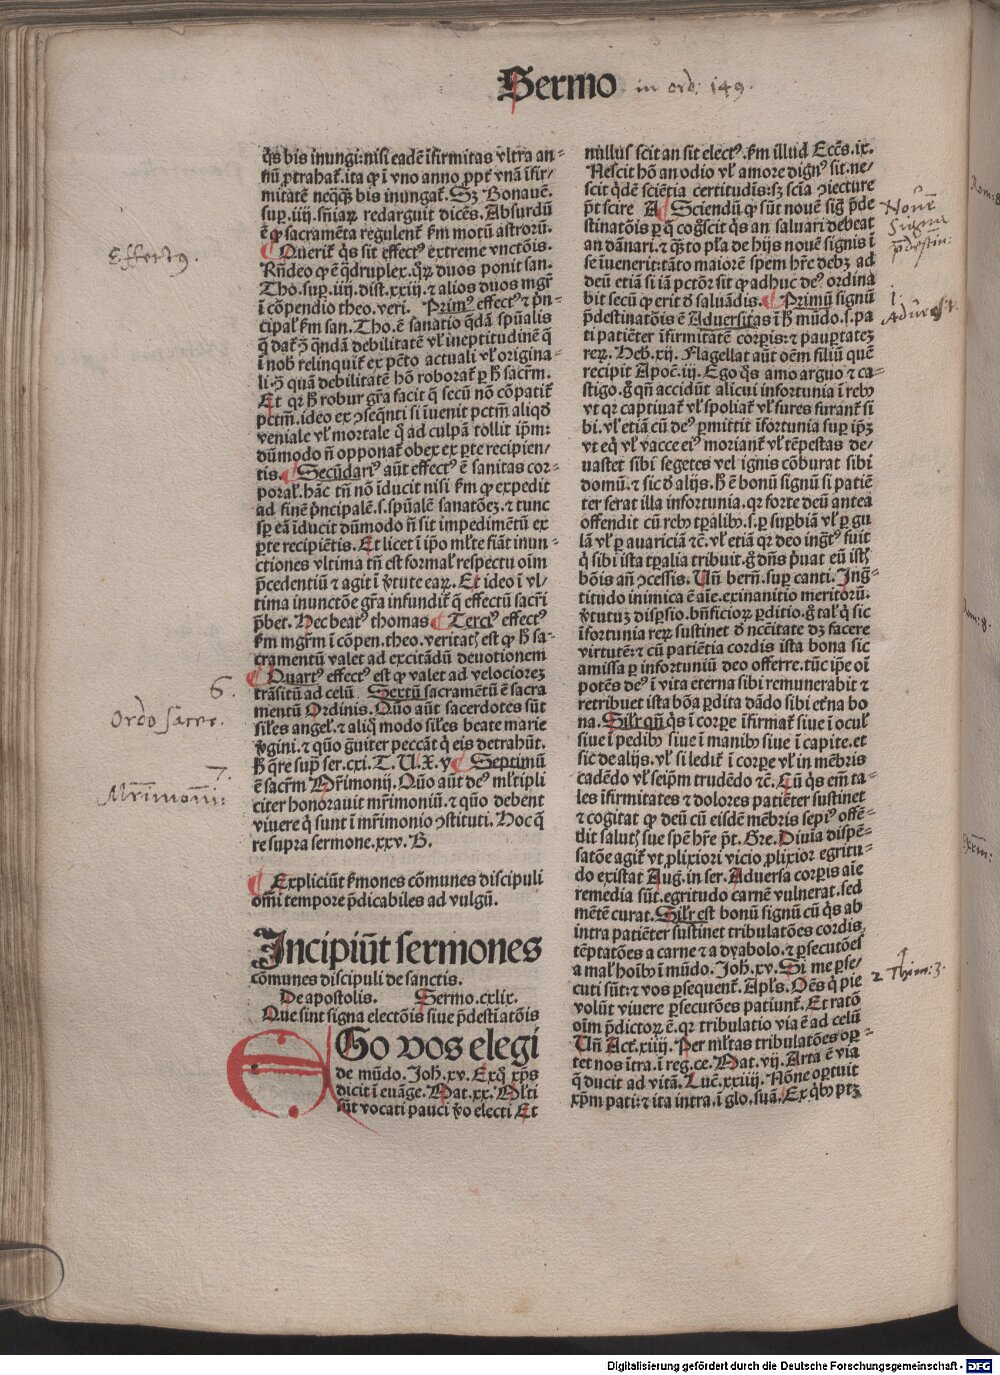 Sermo in ord: 149.
q̄s bis inungi: nisi eadē īfirmitas vltra an-
nū ꝓtrahaṫ. ita ꝙ ī vno anno ꝓpt᷑ vnā īfir-
mitatē neqꝙ̄ bis inungaṫ. Sꝫ Bonauē.
suꝑ. iiij. sn̄iaꝝ redarguit dicēs. Absurdū
ē ꝙ sacramēta regulent᷑ ẜm motū astrorū.
Querit᷑ q̄s sit effectꝰ extreme vnctōis.
Rn̄deo ꝙ ē q̄druplex. qꝝ duos ponit san.
Tho. suꝑ. iiij. dist. xxiij. ⁊ alios duos mgr̄
ī cōpendio theo. veri. Primꝰ effectꝰ ⁊ p̄n-
cipal᷑ ẜm san. Tho. ē sanatio q̄dā spūalis
ī nob̄ relinquit᷑ ex pctō actuali vl᷑ origina-
li. ꝯ̄ quā debilitatē hō roborat᷑ ꝑ h̄ sacr̄m.
Et qꝛ h̄ robur gr̄a facit q̄ secū nō cōpatit᷑
pctm̄. ideo ex ꝯseqn̄ti si īuenit pctm̄ aliqd̄
veniale vl᷑ mortale q̄ ad culpā tollit ip̄m:
dūmodo n̄ opponat᷑ obex ex ꝑte recipien-
tis. Secūdariꝰ aūt effectꝰ ē sanitas cor-
poral᷑. hāc tn̄ nō īducit nisi ẜm ꝙ expedit
ad finē p̄ncipalē. s. spūalē sanatōeꝫ. ⁊ tunc
sꝑ eā īducit dūmodo n̄ sit impedimētū ex
ꝑte recipiētis. Et licet ī ip̄o ml̄te fiāt inun-
ctiones vltima tn̄ est formal᷑ respectu oīm
p̄cedentiū ⁊ agit ī v̄tute eaꝝ. Et ideo ī vl/
tima inunctōe gr̄a infundit᷑ q̄ effectū sacr̄i
p̄bet. Hec beatꝰ thomas. Terciꝰ effectꝰ
ẜm mgr̄m ī cōpen. theo. veritatꝭ est ꝙ h̄ sa-
cramentū valet ad excitādū deuotionem
Quartꝰ effectꝰ est ꝙ valet ad velocioreꝫ
trāsitū ad celū. Sextū sacramētū ē sacra
mentū Ordinis. Quō aūt sacerdotes sūt
sil̄es angel᷑. ⁊ aliq̄ modo sil̄es beate marie
v̄gini. ⁊ quō g̑uiter peccāt q̇ eis detrahūt.
h̄ q̄re supͣ ser. cxi. T. U. X. y Septimū
ē sacr̄m Mr̄imonij. Quō aūt deꝰ ml̄tipli
citer honorauit mr̄imoniū. ⁊ quō debent
viuere q̇ sunt ī mr̄imonio ꝯstituti. Hoc q̄
re supra sermone. xxv. B.
Expliciūt ẜmones cōmunes discipuli
om̄i tempore p̄dicabiles ad vulgū.
Incipiūt sermones
cōmunes discipuli de sanctis.
De apostolis. Sermo. cxlix.
Que sint signa electōis siue p̄destiatōis
EGo vos elegi
de mūdo. Joh̄. xv. Exq̄ xp̄s
dicit ī euāge. Mat. xx. Ml̄ti
sūt vocati pauci v̄o electi Et
nullus scit an sit electꝰ. ẜm illud Eccēs. ix.
Nescit hō an odio vl᷑ amore dignꝰ sit. ne/
scit q̄dē sciētia certitudīs: sꝫ scīa ꝯiecture
p̄t scire A Sciendū ꝙ sūt nouē siḡ p̄de
stinatōis ꝑ q̄ coḡscit q̇s an saluari debeat
an dānari. ⁊ q̄ꝫto pl̄a de hijs nouē signis ī
se īuenerit: tāto maiorē spem hr̄e debꝫ ad
deū etiā si iā pctōr sit ꝙ adhuc deꝰ ordina
bit secū ꝙ erit d̄ saluādis. Primū signū
p̄destinatōis ē Aduersitas ī h̄ mūdo. s. pa
ti patiēter īfirmitatē corꝑis: ⁊ paupertateꝫ
reꝝ. Heb. xij. Flagellat aūt oēm filiū quē
recipit Apoc̄. iij. Ego q̇s amo arguo ⁊ ca-
stigo. g̊ qn̄ accidūt alicui infortunia ī rebꝫ
vt qꝛ captiuat᷑ vl᷑ spoliat᷑ vl᷑ fures furant᷑ si
bi. vl᷑ etiā cū deꝰ ꝑmittit īfortunia suꝑ ip̄ꝫ
vt eq̇ vl᷑ vacce eiꝰ moriant᷑ vl᷑ tēpestas de/
uastet sibi segetes vel ignis cōburat sibi
domū. ⁊ sic d̄ alijs. h̄ ē bonū signū si patiē
ter ferat illa infortunia. qꝛ forte deū antea
offendit cū rebꝫ tꝑalibꝫ. s. ꝑ suꝑbiā vl᷑ ꝑ gu
lā vl᷑ ꝑ auariciā ⁊c̄. vl᷑ etiā qꝛ deo ingͣtꝰ fuit
q̇ sibi ista tꝑalia tribuit. g̊ dn̄s p̄uat eū istꝭ
bōis an̄ ꝯcessis. Un̄ bern̄. suꝑ canti. Ingͣ-
titudo inimica ē aīe. exinanitio meritorū.
v̄tutuꝫ disꝑsio. bn̄ficioꝝ ꝑditio. g̊ tal᷑ q̇ sic
īfortunia reꝝ sustinet d̄ ncc̄itate dꝫ facere
virtutē: ⁊ cū patiētia cordis ista bona sic
amissa ꝑ infortuniū deo offerre. tūc ip̄e oī
potēs deꝰ ī vita eterna sibi remunerabit ⁊
retribuet ista bōa ꝑdita dādo sibi et̄na bo
na. Sil᷑r qn̄ q̇s ī corꝑe īfirmat᷑ siue ī ocul᷑
siue ī pedibꝫ siue ī manibꝫ siue ī capite. et
sic de alijs. vl᷑ si ledit᷑ ī corꝑe vl᷑ in mēbris
cadēdo vl᷑ seip̄m trudēdo ⁊c̄. Cū q̇s em̄ ta-
les īfirmitates ⁊ dolores patiēter sustinet
⁊ cogitat ꝙ deū cū eisdē mēbris sepiꝰ offē-
dit salutꝭ sue spē hr̄e p̄t. Gre. Diuīa dispē-
satōe agit᷑ vt ꝓlixiori vicio ꝓlixior egritu-
do existat Aug. in ser. Aduersa corꝑis aīe
remedia sūt. egritudo carnē vulnerat. sed
mētē curat. Sil᷑r est bonū signū cū q̇s ab
intra patiēter sustinet tribulatōes cordis.
tēptatōes a carne ⁊ a dyabolo. ⁊ ꝑsecutōes
a mal᷑ hoībꝫ ī mūdo. Joh̄. xv. Si me ꝑse/
cuti sūt: ⁊ vos ꝑsequent᷑. Apl̄s. Oēs q̇ pie
volūt viuere ꝑsecutōes patiunt᷑. Et ratō
oīm p̄dictoꝝ ē. qꝛ tribulatio via ē ad celū
Un̄ Act᷑. xiiij. Per ml̄tas tribulatōes oꝑ-
tet nos ītra. ī reg. ce. Mat. vij. Arta ē via
q̄ ducit ad vitā. Luc̄. xxiiij. Nōne oꝑtuit
xp̄m pati: ⁊ ita intra. ī glo. suā. Ex q̇bꝫ ptꝫ
Effectꝰ.
6.
Ordo sacer.
7.
Mr̄imonij:
Novē
Signa
p̄destin:
1.
Aduersit.
2 Thim: 3.
Digitalisierung gefördert durch die Deutsche Forschungsgemeinschaft - DFG